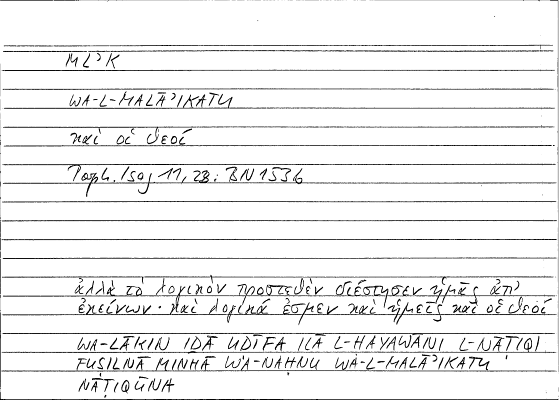 MLʾK
WA-L-MALĀʾIKATU
καὶ οἱ θεοί
Porph. Isag 11, 23: BN 153b
ἀλλὰ τὸ λογικὸν προστεθὲν διέστησεν ἡμᾶς ἀπ'
ἐκείνων · καὶ λογικά ἐσμεν καὶ ἡμεῖς καὶ οἱ θεοί
WA-LĀKIN IḎĀ UḌĪFA ILĀ L-ḤAYAWĀNI L-NĀṬIQI
FUṢILNĀ MINHĀ WA-NAḤNU WA-L-MALĀʾIKATU
NĀṬIQŪNA